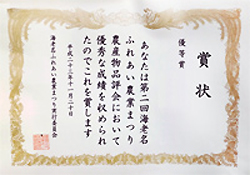 賞状
優等賞
あなたは第二回海老名
ふれあい農業まつり
農産物品評会において
優秀な成績を収められ
たのでこれを賞します
平成二十三年十一月二十日
海老名ふれあい農業まつり実行委員会